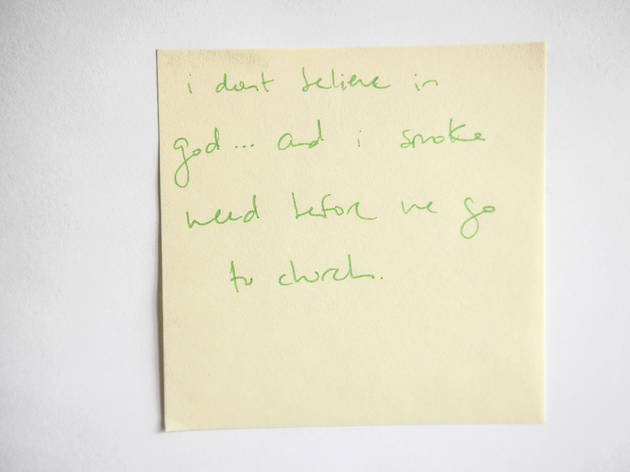 i dont believe in
god... and i smoke
weed before we go
to church.